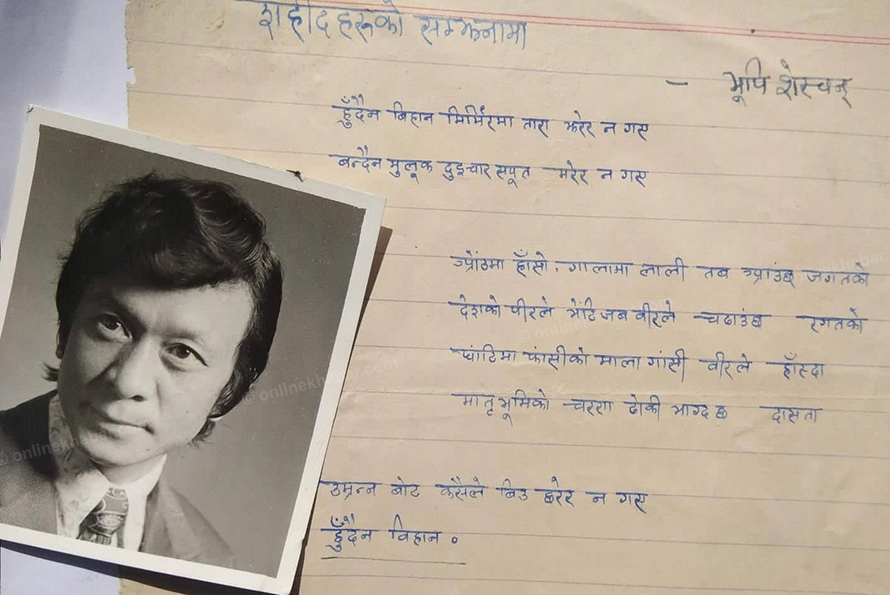 शहीदहरूको सम्झनामा
— भूपि शेरचन्
हुँदैन बिहान मिर्मिरमा तारा झरेर न गए
बन्दैन मुलुक दुइचार सपूत मरेर न गए
ओठमा हाँसो, गालामा लाली तब आउँछ जगतको
देशको पीरले भेटि जब वीरले चढाउँछ रगतको
घाँटिमा फांसीको माला गांसी वीरले हाँस्दा
मातृभूमिको चरण ढोकी भाग्दछ दासता
उम्रन्न बोट कसैले बिउ छरेर न गए
हुँदैन विहान ।
© onlinekhabar.com